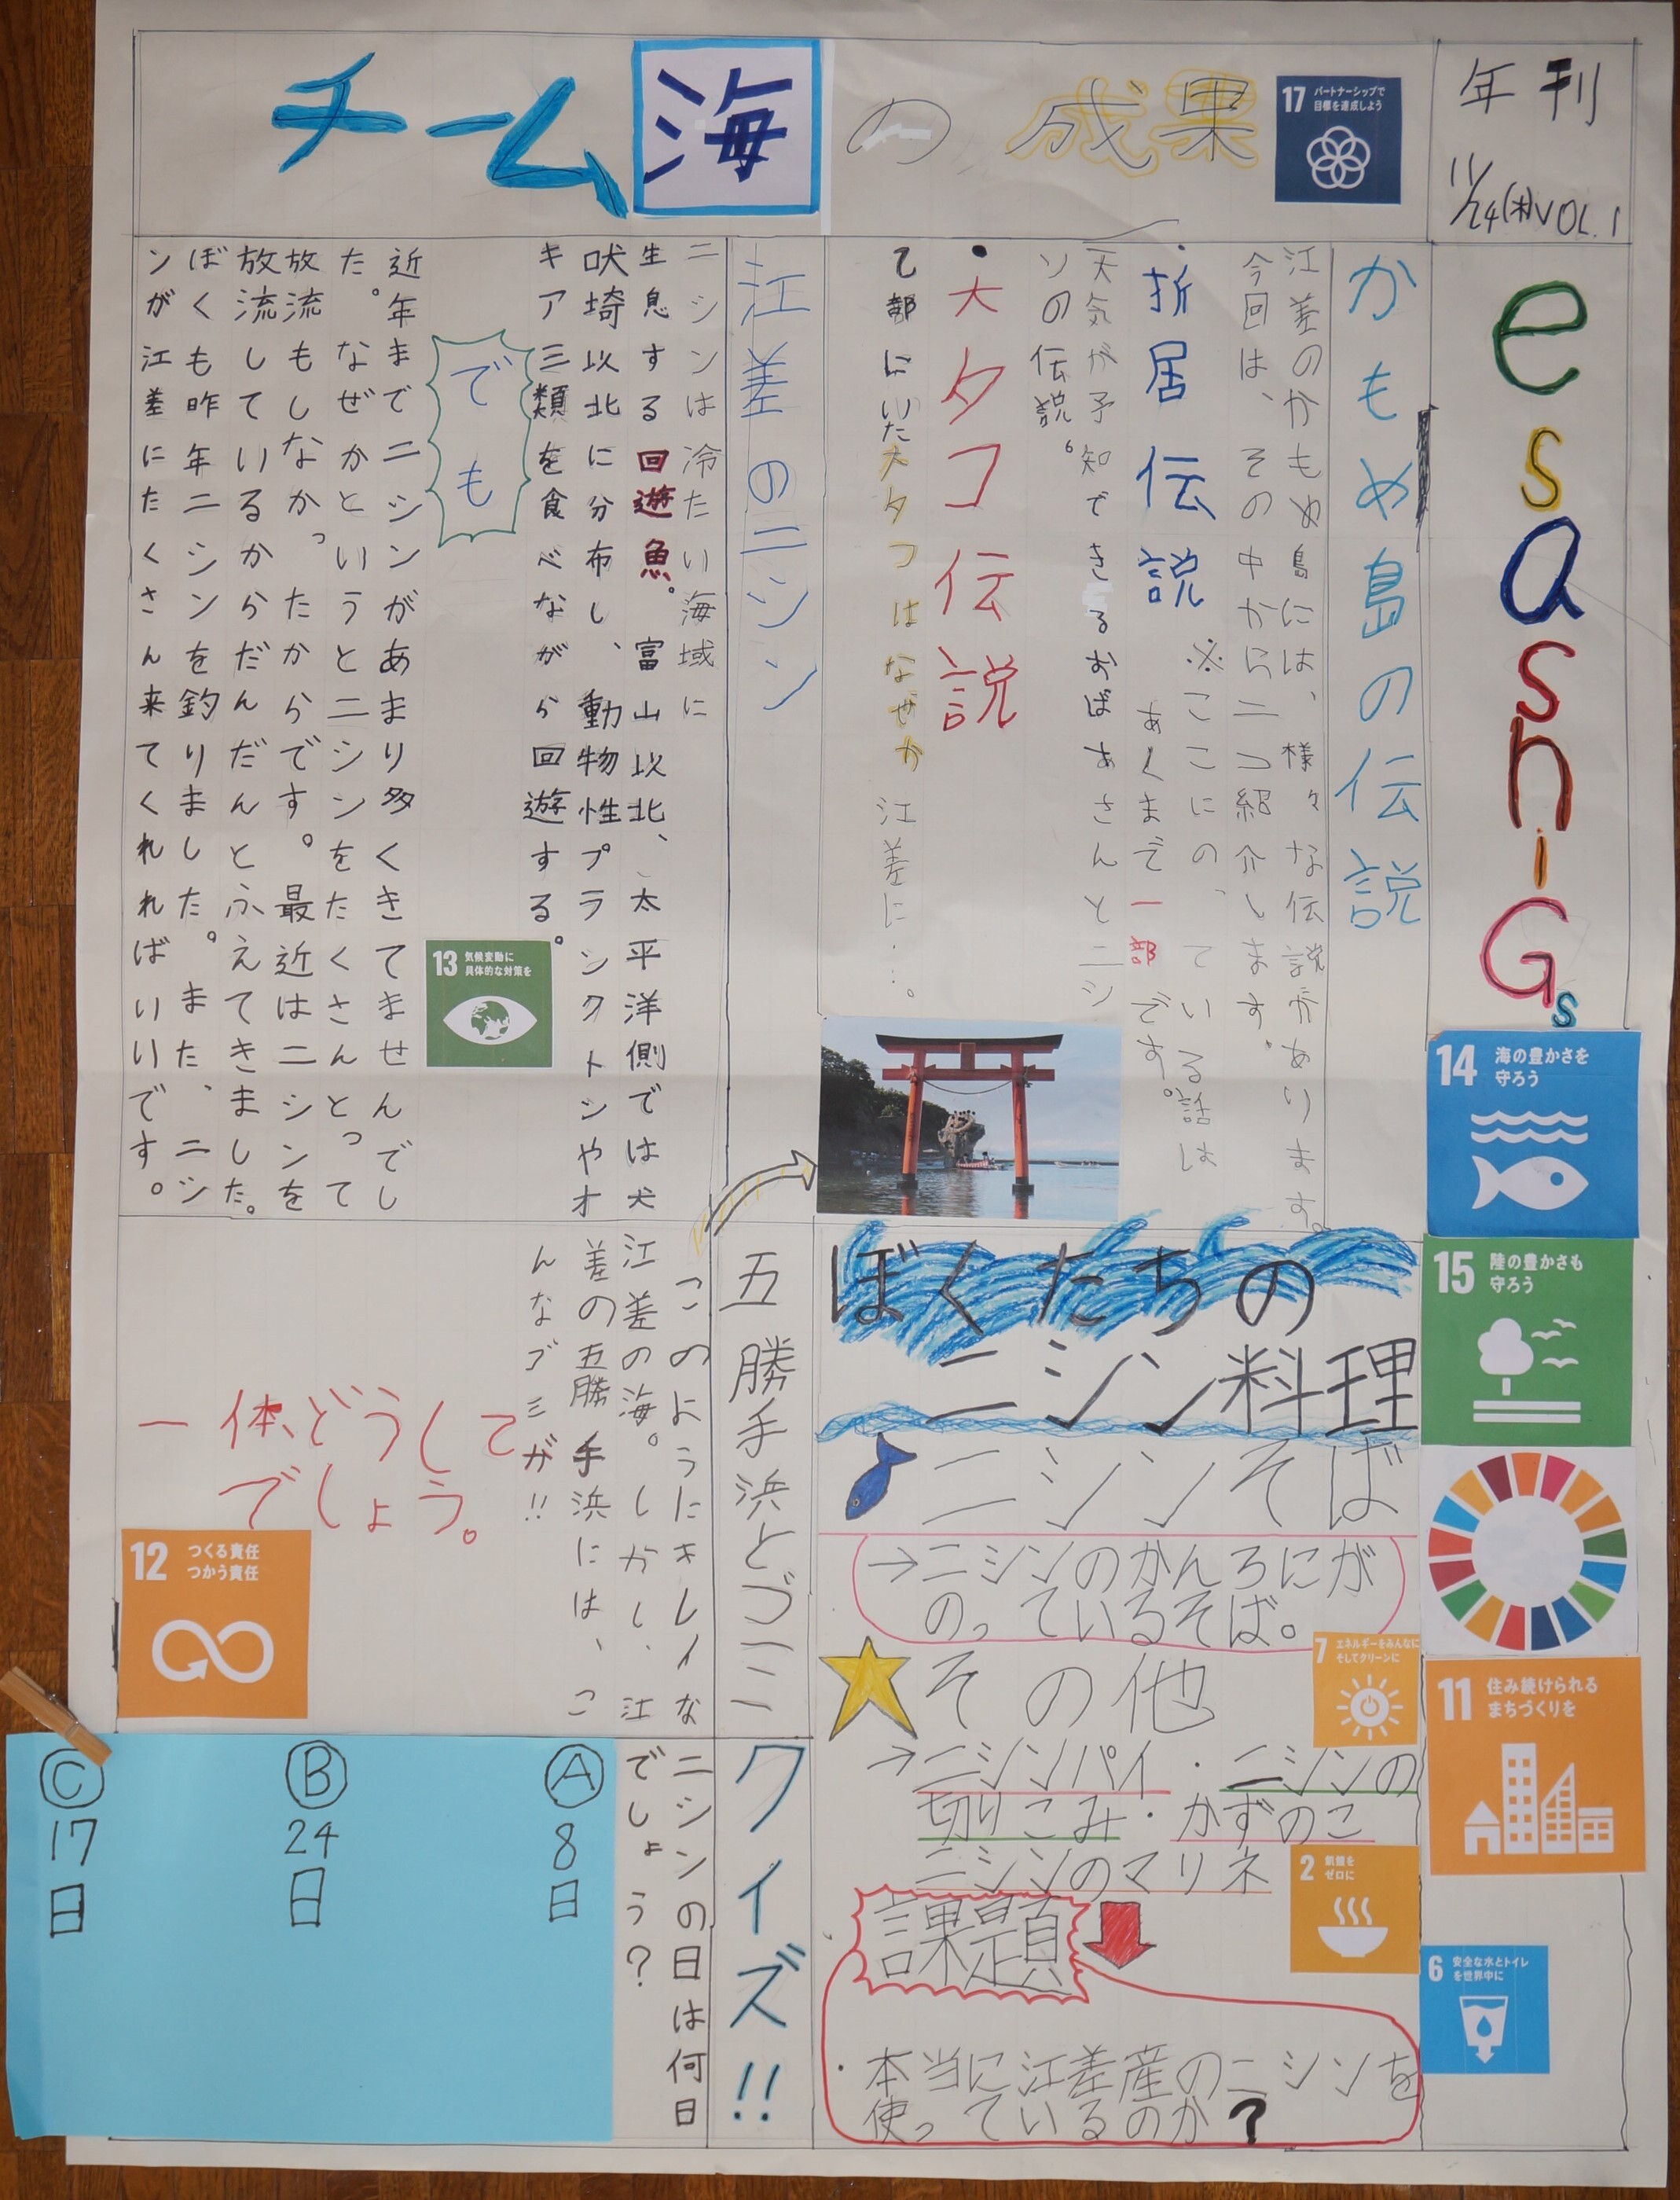 チーム海の成果
17 パートナーシップで
目標を達成しよう
年刊
11/24(木)VOL.1
esasniGs
14 海の豊かさを
守ろう
15 陸の豊かさも
守ろう
11 住み続けられる
まちづくりを
6 安全な水とトイレ
を世界中に
かもめ島の伝説
江差のかもめ島には、様々な伝説があります。
今回は、その中から二つ紹介します。
※ここにのっている話は
あくまで一部です。
・折居伝説
天気が予知できるおばあさんとニシ
ンの伝説。
・大タコ伝説
乙部にいた大タコはなぜか江差に…。
江差のニシン
ニシンは冷たい海域に
生息する回遊魚。富山以北、太平洋側では犬
吠埼以北に分布し、動物性プランクトンやオ
キアミ類を食べながら回遊する。
でも
13 気候変動に
具体的な対策を
近年までニシンがあまり多くきてませんでし
た。なぜかというとニシンをたくさんとって
放流もしなかったからです。最近はニシンを
放流しているからだんだんとふえてきました。
ぼくも昨年ニシンを釣りました。また、ニシ
ンが江差にたくさん来てくれればいいです。
ぼくたちの
ニシン料理
ニシンそば
→ニシンのかんろにが
のっているそば。
その他
7 エネルギーをみんなに
そしてクリーンに
→ニシンパイ・ニシンの
切りこみ・かずのこ
ニシンのマリネ
2 飢餓を
ゼロに
課題
・本当に江差産のニシンを
使っているのか?
五勝手浜とゴミ
このようにキレイな
江差の海。しかし、江
差の五勝手浜には、こ
んなゴミが!!
一体どうして
でしょう。
12 つくる責任
つかう責任
クイズ!!
ニシンの日は何日
でしょう?
Ⓐ8日
Ⓑ24日
Ⓒ17日